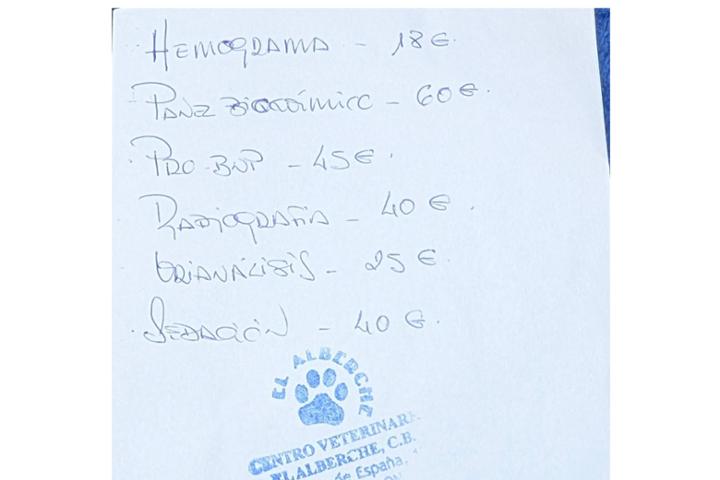 · HEMOGRAMA - 18 €.
· PANEL BIOQUÍMICO - 60 €.
· PRO-BNP - 45 €.
· RADIOGRAFÍA - 40 €.
· URIANÁLISIS - 25 €.
· SEDACIÓN - 40 €.
EL ALBERCHE
CENTRO VETERINARI
EL ALBERCHE, C.B.
de España,